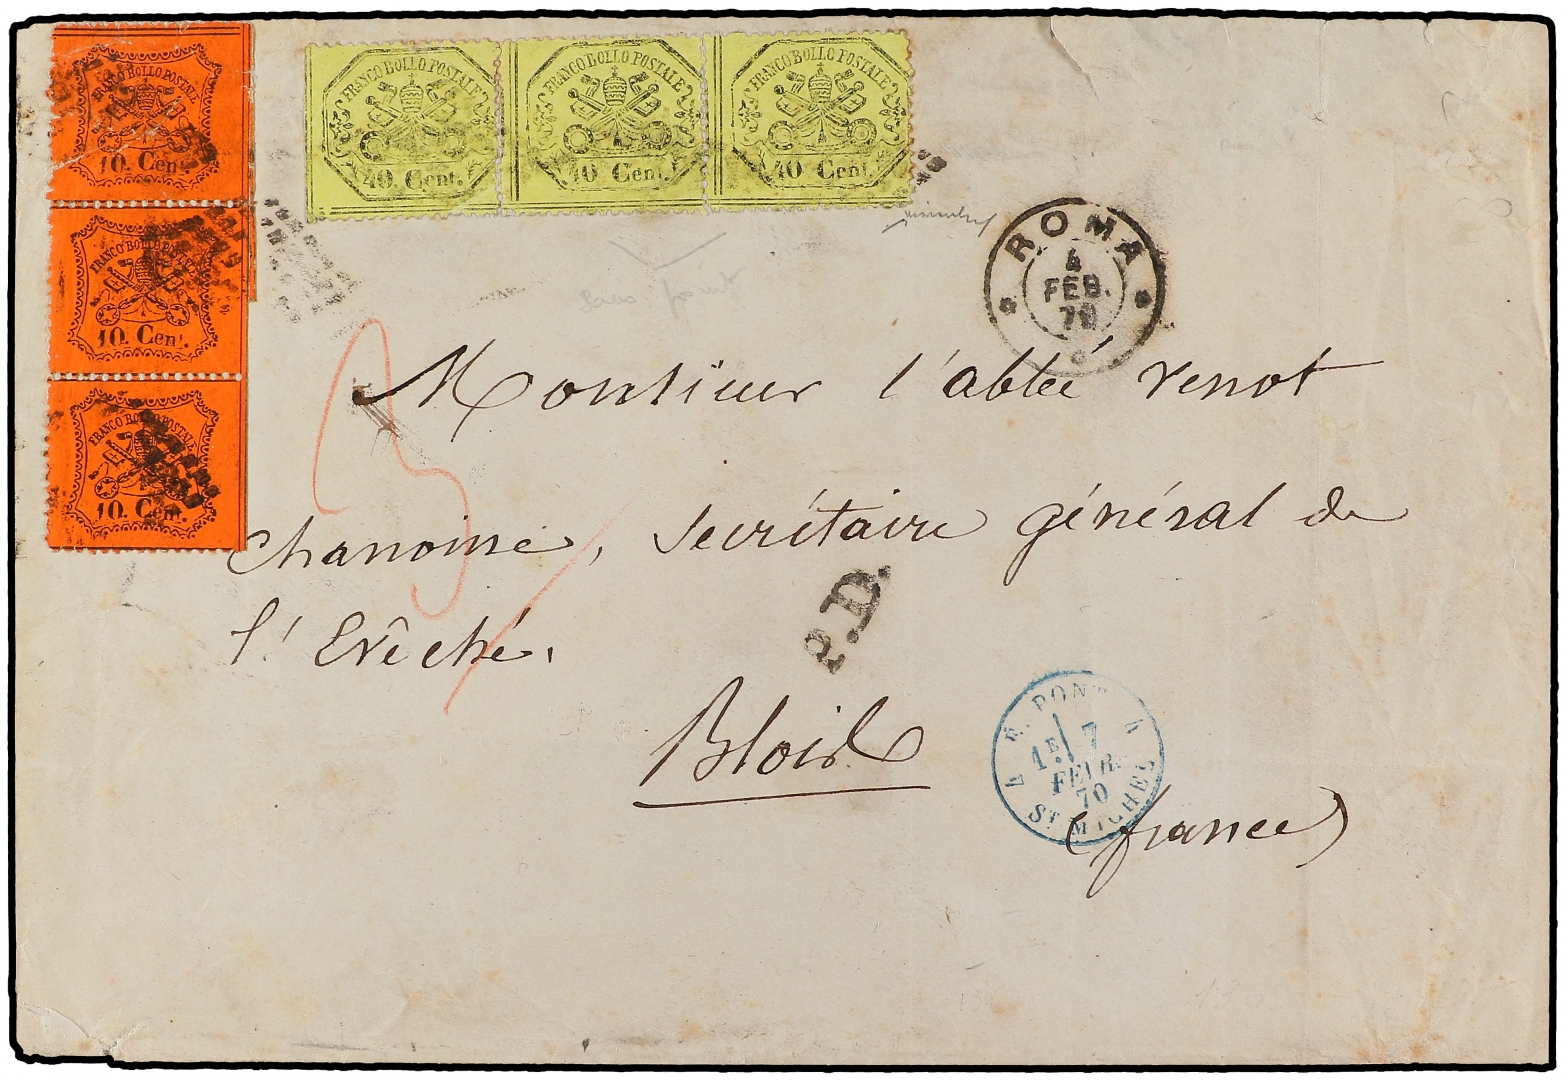 FRANCO BOLLO POSTALE
10. Cent.
FRANCO BOLLO POSTALE
10. Cent.
FRANCO BOLLO POSTALE
10. Cent.
FRANCO BOLLO POSTALE
40. Cent.
FRANCO BOLLO POSTALE
40 Cent.
FRANCO BOLLO POSTALE
40 Cent.
sans point
ROMA
4
FEB.
70
Monsieur l'abbé Venot
Chanoine, Secrétaire général de
l'Evêché.
P.D.
Blois
E. PONT
1E 7
FEVR.
70
ST MICHEL
(france)
3